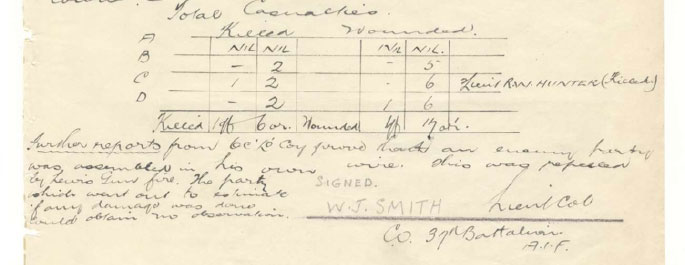 Total Casualties.
Killed Wounded.
A NIL NIL NIL NIL.
B - 2 - 5
C 1 2 - 6 Lieut R.W. HUNTER (Killed)
D - 2 1 6
Killed 1 off 6 or. Wounded 1 off 17 or.
Further reports from "C" Coy proved that an enemy party
was assembled in his own wire. This was repulsed
by Lewis Gun fire. The party
which went out to estimate
if any damage was done,
could obtain no observation.
SIGNED.
W.J. SMITH Lieut Col
C.O. 37th Battalion.
A.I.F.